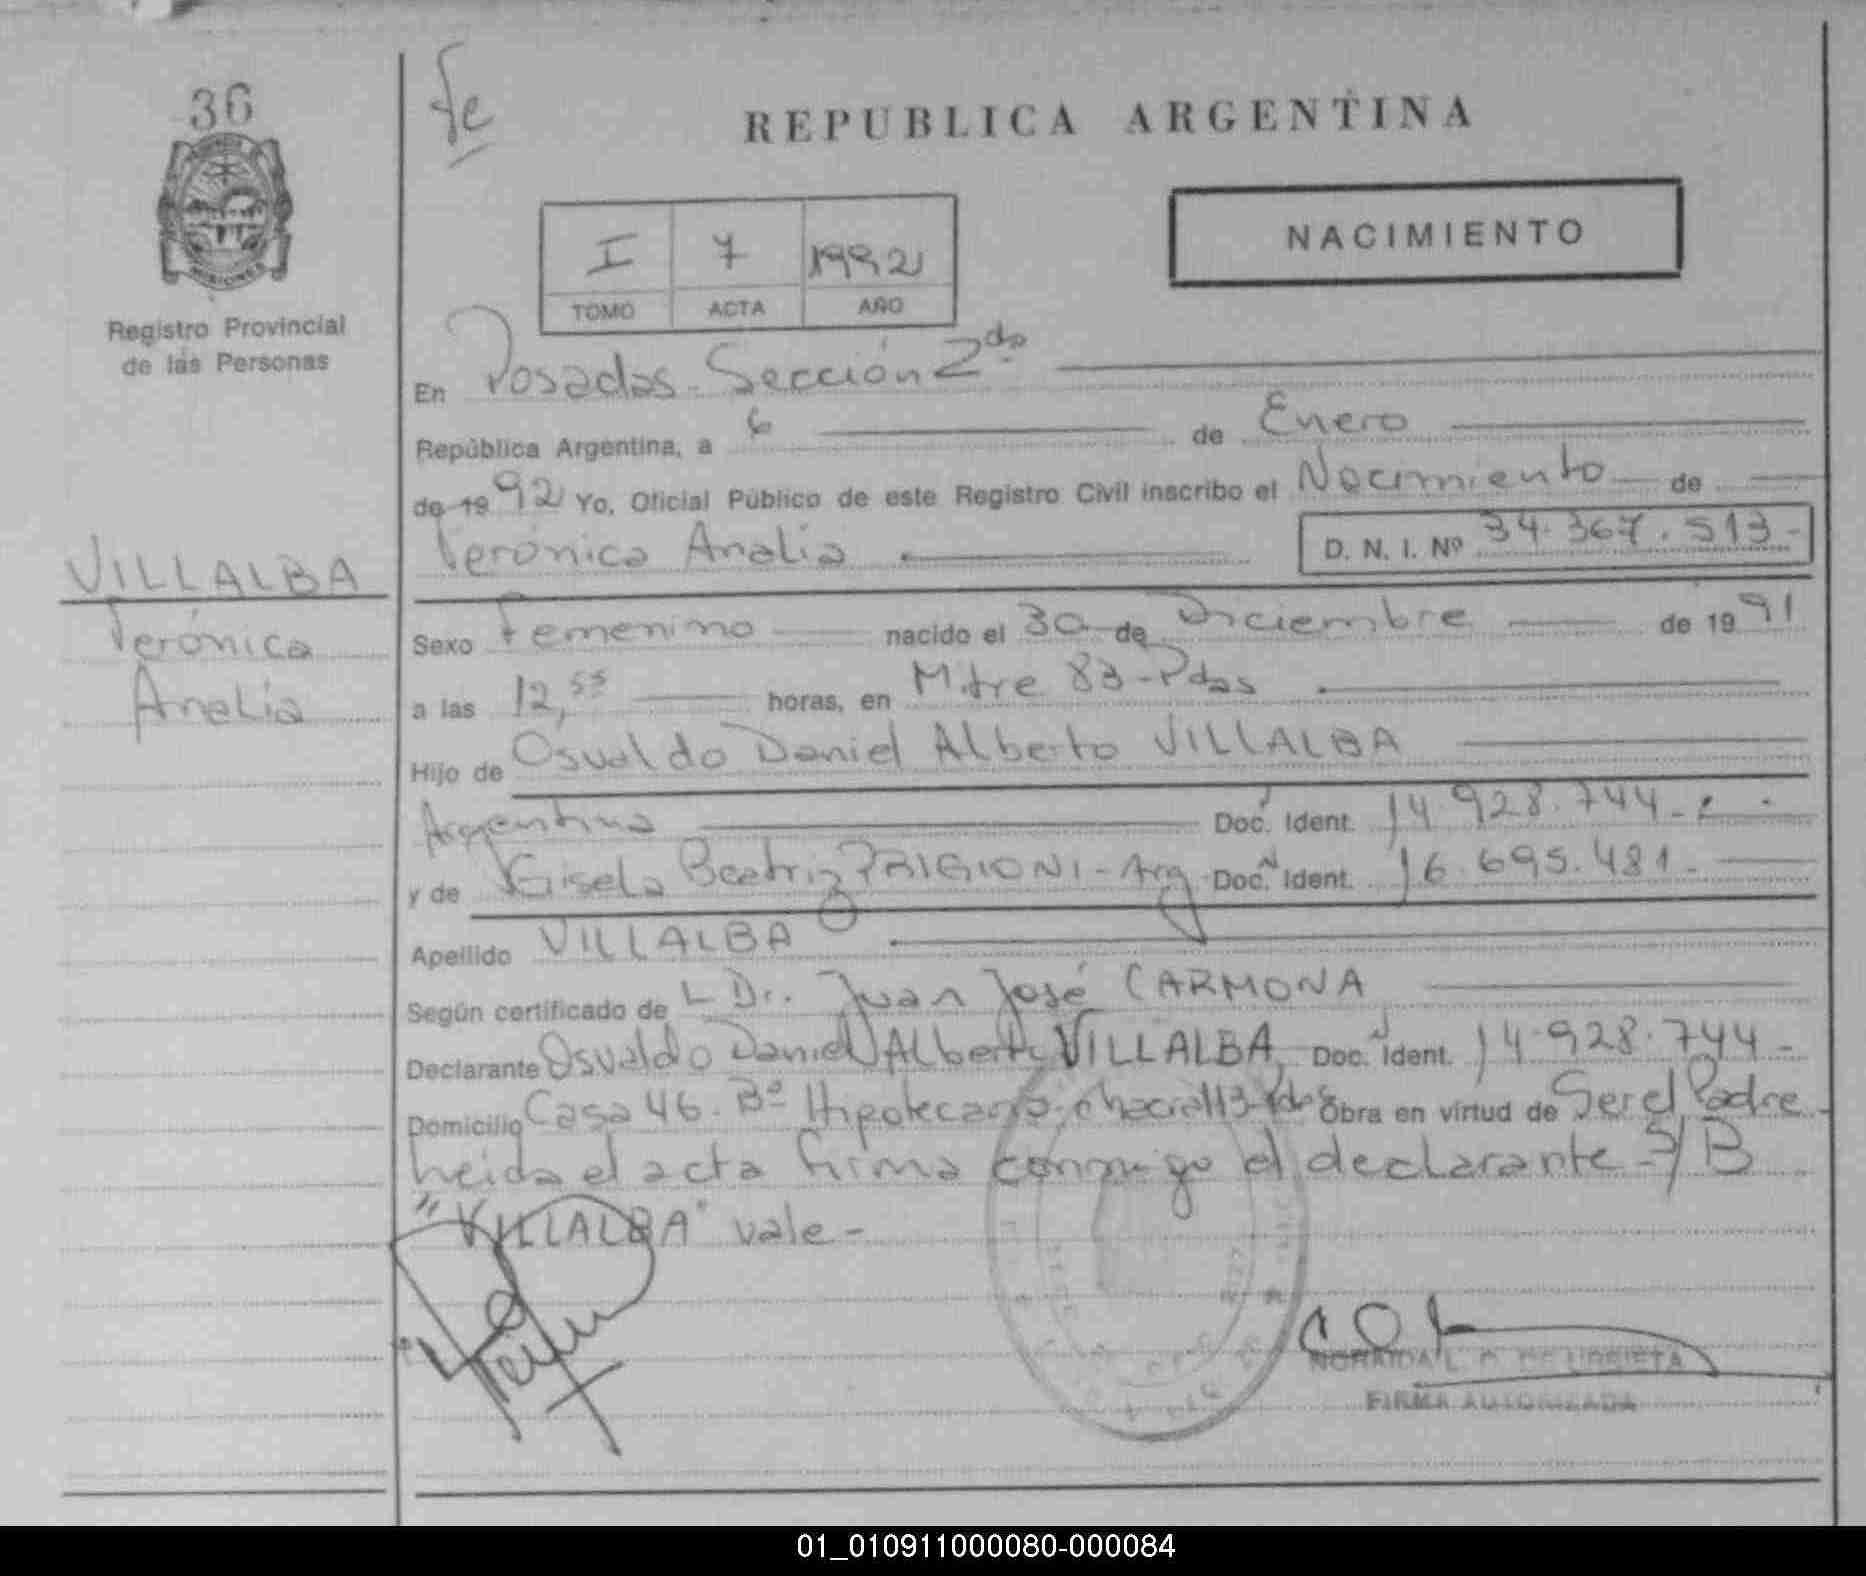 36
Registro Provincial
de las Personas
VILLALBA
Verónica
Analía
fe
REPUBLICA ARGENTINA
NACIMIENTO
I 7 1992
TOMO ACTA AÑO
En Posadas - Sección 2da
República Argentina, a 6 de Enero
de 1992 Yo, Oficial Público de este Registro Civil inscribo el Nacimiento de
Verónica Analia D. N. I. Nº 34.367.513-
Sexo Femenino nacido el 30 de Diciembre de 1991
a las 12,55 horas, en Mitre 83-Pdas
Hijo de Osvaldo Daniel Alberto VILLALBA
Argentina Doc. Ident. 14.928.744-
y de Gisela Beatriz PRIGIONI - Arg Doc. Ident. 16.695.481-
Apellido VILLALBA
Según certificado de L Dr. Juan José CARMONA
Declarante Osvaldo Daniel Alberto VILLALBA Doc. Ident. 14.928.744-
Domicilio Casa 46. Bº Hipotecario. chacra 113-Pdas Obra en virtud de Ser el Padre-
Leida el acta firma conmigo el declarante - S/B
"VILLALBA" vale-
NORAIDA L. DE URRIETA
FIRMA AUTORIZADA
01_010911000080-000084